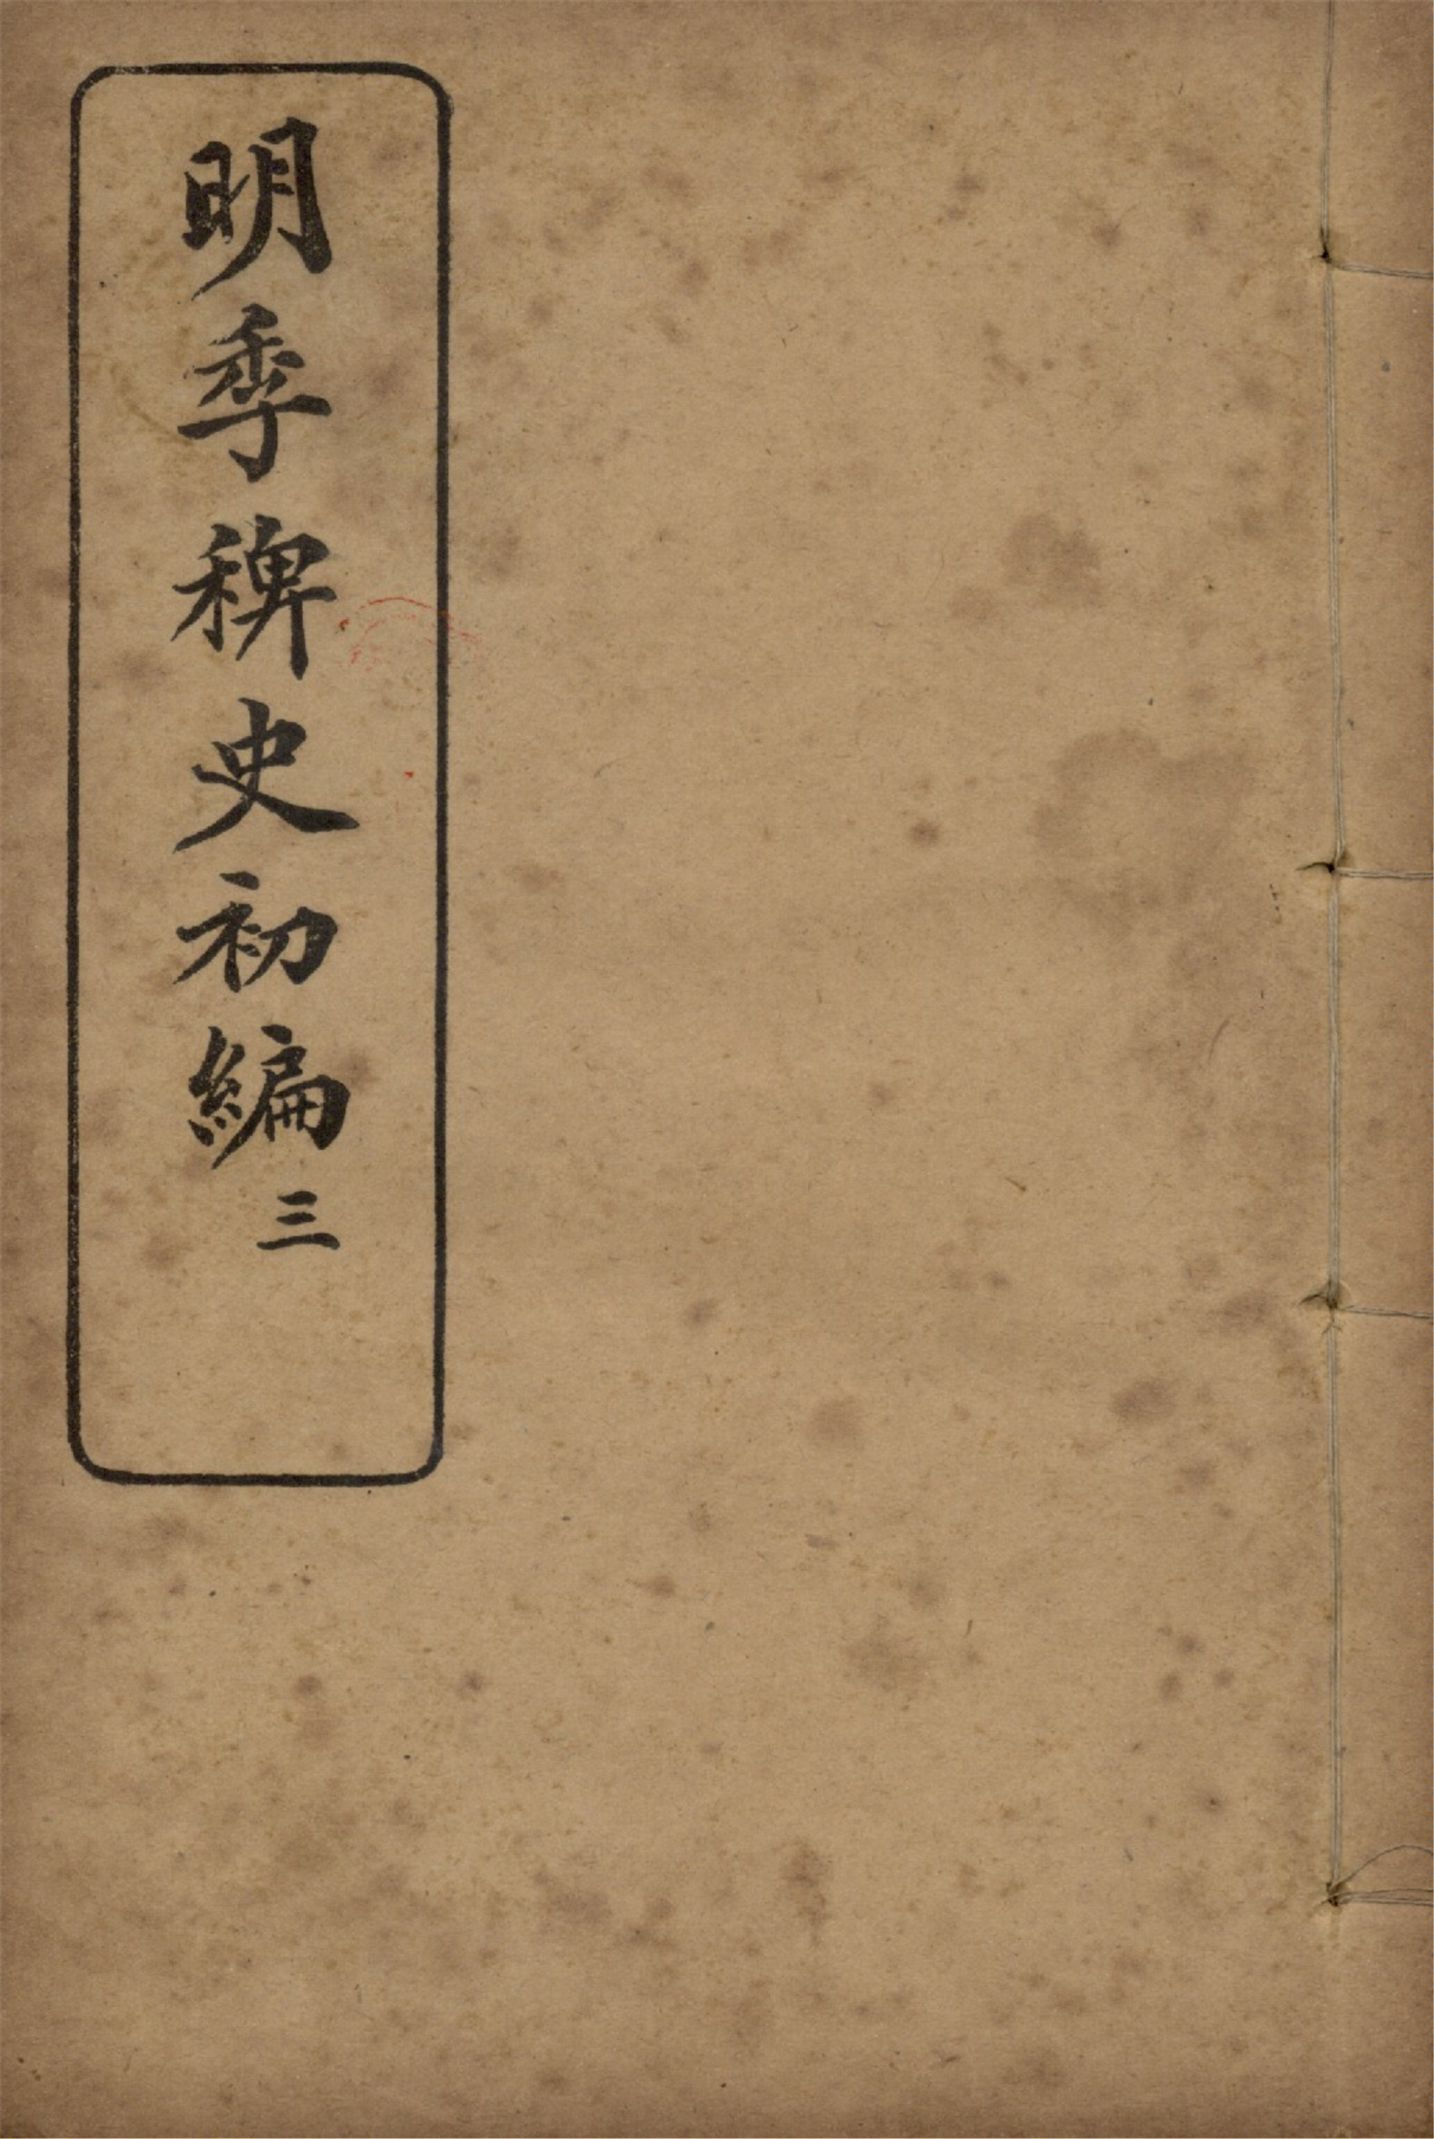 明季稗史初編 三